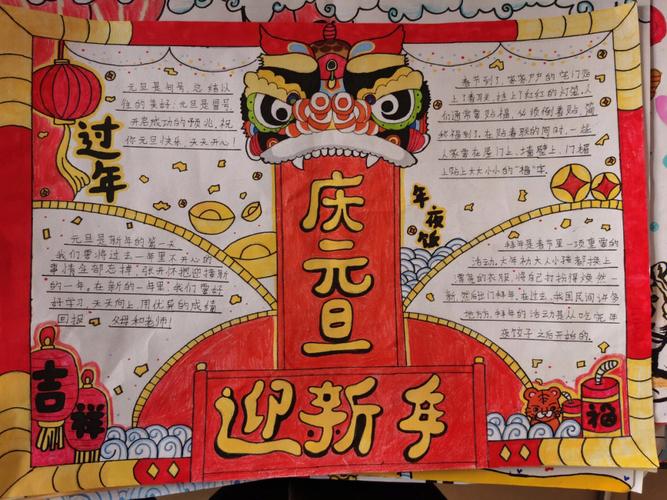 过年
元旦是句号，总结以
往的美好；元旦是冒号
开启成功的预兆，祝
你元旦快乐，天天开心！
春节到了，家家户户的宅门贴
上了春联，挂上了红红的灯笼，人
们通常要贴福，必须倒着贴，简
称福到了，在贴春联的同时，一些
人家要在屋门上、墙壁上、门楣
上贴上大大小小的"福"字。
庆元旦
年夜饭
元旦是新年的第一天
我们要将过去一年里不开心的
事情全部忘掉，张开怀抱迎接新
的一年，在新的一年里，我们要好
好学习，天天向上，用优异的成绩
回报 父母和老师！
拜年是春节里一项重要的
活动，大年初大人小孩都换上
漂亮的衣服，将自己打扮得焕然一
新，然后出门拜年，在过去，我国民间
地方，拜年的活动是从吃完年
夜饺子之后开始的。
吉祥
迎新年
福